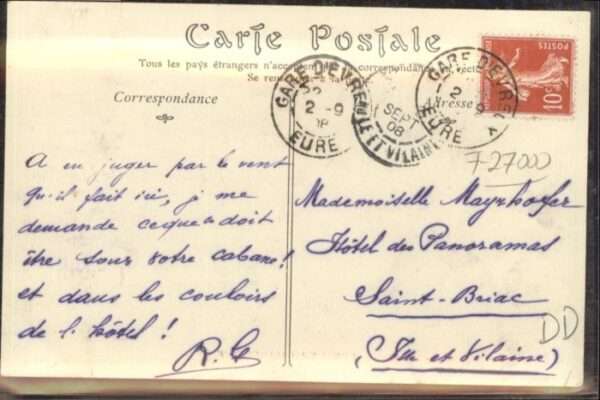 Carte Postale
Tous les pays étrangers n'acceptent la correspondance recto
Se re
Correspondance
Adresse
GARE D'EVREUX
2 - 9
08
EURE
SEPT
08
ILLE ET VILAINE
GARE D'EVREUX
2
9
EURE
POSTES
10c
727000
A en juger par le vent
qu'il fait ici, je me
demande ce que ce doit
être sous votre cabane!
et dans les couloirs
de l'hôtel!
R. G
Mademoiselle Mayrhofer
Hôtel des Panoramas
Saint-Briac
(Ille et Vilaine)
DD